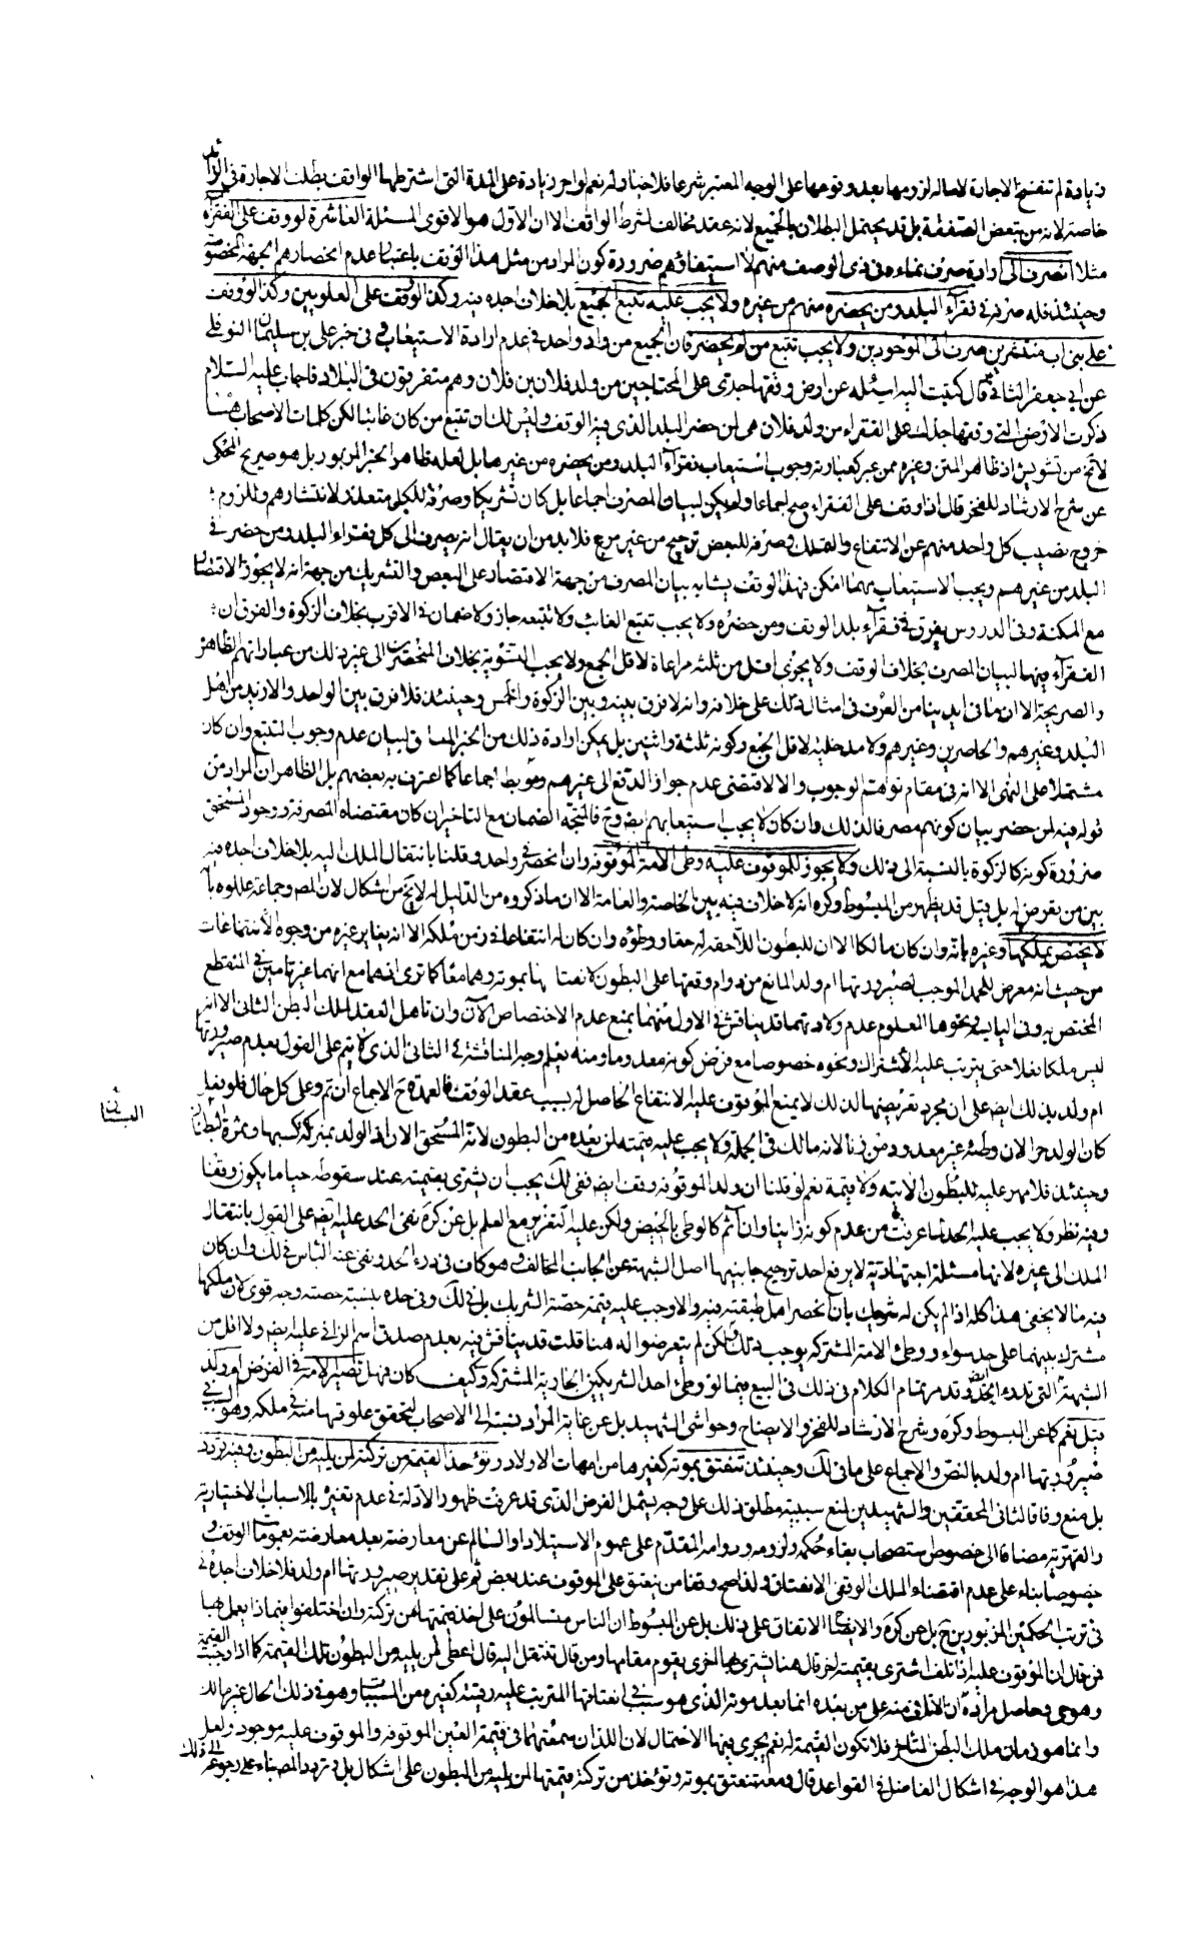 زيادة لم تنفسخ الاجارة لاصالة لزومها بعد وقوعها على الوجه المعتبر شرعا فلا خيار له نعم لو اجر زيادة على المدة التى اشترطها الواقف بطلت الاجارة فى الزائد
خاصة لانه من تبعض الصفقة بل قد يحتمل البطلان بالجميع لانه عقد مخالف لشرط الواقف الا ان الاول هو الاقوى المسئلة العاشرة لو وقف على الفقراء
مثلا انصرف الى ارادة صرف نماءه فى ذى الوصف منهم لا استيفاؤهم ضرورة كون المراد من مثل هذا الوقف باعتبار عدم انحصارهم الجهة المخصوصة
وحينئذ فله صرفه فى فقراء البلد ومن يحضره منهم من غيره ولا يجب عليه تتبع الجميع بلا خلاف اجده فيه وكذا لو وقف على العلويين وكذا لو وقف
على بنى اب منتشرين صرف الى الموجودين ولا يجب تتبع من لم يحضر فان الجميع من واد واحد فى عدم ارادة الاستيعاب فى خبر على بن سليمان النوفلى
عن ابى جعفر الثانى قال كتبت اليه اسئله عن ارض وقفها جدى على المحتاجين من ولد فلان بن فلان وهم متفرقون فى البلاد فاجاب عليه السلام
ذكرت الارض التى وقفها جدك على الفقراء من ولد فلان هى لمن حضر البلد الذى فيه الوقف وليس لك ان تتبع من كان غائبا لكن كلمات الاصحاب هنا
لا تخ من تشويش اذ ظاهر المتن وغيره ممن عبر كعبارته وجوب استيعاب فقراء البلد ومن يحضره من غيرها بل لعله ظاهر الخبر المزبور بل هو صريح المحكى
عن شرح الارشاد للفخر قال اذا وقف على الفقراء صح اجماعا ولم يكن لبيان المصرف اجماعا بل كان تشريكا وصرفه للكل متعذر لانتشارهم وللزوم
خروج نصيب كل واحد منهم عن الانتفاع والتملك وصرفه للبعض ترجيح من غير مرجح فلا بد من ان يقال انه يصرف الى كل فقراء البلد ومن حضر فى
البلد من غيرهم ويجب الاستيعاب مهما امكن فهذا الوقف يشابه بيان المصرف من جهة الاقتصار على البعض والتشريك من جهة انه لا يجوز الاقتصار
مع المكنة وفى الدروس يفرق فى فقراء بلد الوقف ومن حضره ولا يجب تتبع الغائب ولا تتبعه جاز ولا ضمان فى الاقرب بخلاف الزكوة والفرق ان
الفقراء فيها لبيان المصرف بخلاف الوقف ولا يجزى اقل من ثلثة مراعاة لاقل الجمع ولا يجب التسوية بخلاف المنحصرين الى غير ذلك من عباراتهم الظاهرة
والصريحة الا ان ما فى ايدينا من العرف فى امثال ذلك على خلافه وانه لا فرق بينه وبين الزكوة والخمس وحينئذ فلا فرق بين الواحد والازيد من اهل
البلد وغيرهم والحاضرين وغيرهم ولا مدخلية لاقل الجمع وكونه ثلثة واثنين بل يمكن ارادة ذلك من الخبر المساق لبيان عدم وجوب التتبع وان كان
مشتملا على النهى الا انه فى مقام توهم الوجوب والا لاقتضى عدم جواز الدفع الى غيرهم وهو بط اجماعا كما اعترف به بعضهم بل الظاهر ان المراد من
قوله فيه لمن حضر بيان كونهم مصرفا لذلك وان كان لا يجب استيعابهم ايضا وح فالمتجه الضمان مع التاخير ان كان مقتضاه المصرفة ووجود المستحق
ضرورة كونه كالزكوة بالنسبة الى ذلك ولا يجوز للموقوف عليه وطى الامة الموقوفة وان انحصر فى واحد وقلنا بانتقال الملك اليه بلا خلاف اجده فيه
بين من تعرض له بل قيل قد يظهر من المبسوط وكره انه لا خلاف فيه بين الخاصة والعامة الا ان ما ذكروه من الدليل له لا يخ من اشكال لان المص وجماعة عللوه بانه
لا يختص بملكها وغيره بانه وان كان مالكا الا ان للبطون اللاحقة له حقا ووطؤه وان كان له انتفاعا فى زمن ملكه الا انه يغاير غيره من وجوه الانتفاعات
من حيث انه معرض للحمل الموجب لصيرورتها ام ولد المانع من دوام وقفها على البطون لانعتاقها بموته وهما معا كما ترى انهما مع انهما غير تامين فى المنقطع
المختص به وفى اليائسة ونحوها المعلوم عدم ولادتهما قد يناقش فى الاول منهما بمنع عدم الاختصاص الان وان تاهل العقد لملك البطن الثانى الا انه
ليس ملكا فعلا حتى يترتب عليه الاشتراك ونحوه خصوصا مع فرض كونه معدوما ومنه يعلم وجه المناقشة فى الثانى الذى لا يتم على القول بعدم صيرورتها
ام ولد بذلك ايضا على ان مجرد تعريضها لذلك لا يمنع الموقوف عليه الانتفاع الحاصل له بسبب عقد الوقف فالعمدة ح الاجماع ان تم وعلى كل حال فلو فعل
كان الولد حرا لان وطئه غير معدود من زنا لانه مالك فى الجملة ولا يجب عليه قيمته لمن بعده من البطون لانه المستحق الان اذ الولد بمنزلة كسبها وثمرة البستان
وحينئذ فلا مهر عليه للبطون الاتية ولا قيمة نعم لو قلنا ان ولد الموقوفة وقف ايضا ففى لك يجب ان يشترى بقيمته عند سقوطه حيا ما يكون وقفا
وفيه نظر ولا يجب عليه الحد لما عرفت من عدم كونه زانيا وان اثم كالوطى بالحيض ولكن عليه التعزير مع العلم بل عن كره نفى الحد عليه ايضا على القول بانتقال
الملك الى غيره لانها مسئلة اجتهادية لا يرفع احد ترجيح جانبيها اصل الشبهة عن الجانب المخالف وهو كاف فى درء الحد ونفى عنه الباس فى لك وان كان
فيه ما لا يخفى هذا كله اذا لم يكن له شريك بان انحصر اهل طبقته فيه والا وجب عليه قيمة حصة الشريك بل فى لك وفى حده بنسبة حصته وجه قوى لان ملكها
مشترك بينهما على حد سواء ووطى الامة المشتركة يوجب ذلك ولكن لم يتعرضوا له هنا قلت قد يناقش فيه بعدم صدق اسم الزانى عليه ايضا ولا اقل من
الشبهة التى تدرء الحد وقد مر تمام الكلام فى ذلك فى البيع فيما لو وطئ احد الشريكين الجارية المشتركة وكيف كان فهل تصير الامة فى الفرض ام ولد
قيل نعم كما عن المبسوط وكره وشرح الارشاد للفخر والايضاح وحواشى الشهيد بل عن غاية المراد نسبته الى الاصحاب لتحقق علوقها منه فى ملكه وهو السبب فى
ضيرورتها ام ولد بالنص والاجماع على ما فى لك وحينئذ تنعتق بموته كغيرها من امهات الاولاد وتؤخذ القيمة من تركته لمن يليه من البطون وفيه تردد
بل منع وفاقا لثانى المحققين والشهيدين لمنع سببية مطلق ذلك على وجه يشمل الفرض الذى قد عرفت ظهور الادلة فى عدم تغيره بالاسباب الاختيارية
والقهرية مضافا الى خصوص ستصحاب بقاء حكمه ولزومه ودوامه المقدم على عموم الاستيلاد او السالم عن معارضته بعد معارضته بعمومات الوقف
خصوصا بناء على عدم اقتضاء الملك الوقفى الانعتاق ولذا صح وقفا من ينعتق على الموقوف عند بعض ثم على تقدير صيرورتها ام ولد فلا خلاف اجده فى
فى ترتب الحكمين المزبورين ح بل عن كره والايضاح الاتفاق على ذلك بل عن المبسوط ان الناس متسالمون على اخذ قيمتها من تركته وان اختلفوا فيما ذا يعمل بها
فمن قال ان الموقوف عليه اذا تلف اشترى بقيمته اخر قال هنا يشترى بها اخرى يقوم مقامها ومن قال تنتقل اليه قال اعطى لمن يليه من البطون تلك القيمة كما اذا وجبت القيمة
وهو حى وحاصل مراده ان الاتلاف منه على من بعده انما بعد موته الذى هو سبب فى انعتاقها المترتب عليه رقيته كغيره من المسببات وهو فى ذلك الحال غير مالك
وانما هو زمان ملك البطن الثانى فلا تكون القيمة له نعم يجرى فيها الاحتمالان اللذان سمعتهما فى قيمة العين الموقوفة والموقوف عليه موجود ولعل
هذا هو الوجه فى اشكال الفاضل فى القواعد قال ومعه تنعتق بموته وتؤخذ من تركته قيمتها لمن يليه من البطون على اشكال بل فى تردد المص بناء على رجوعه الى ذلك
البستان